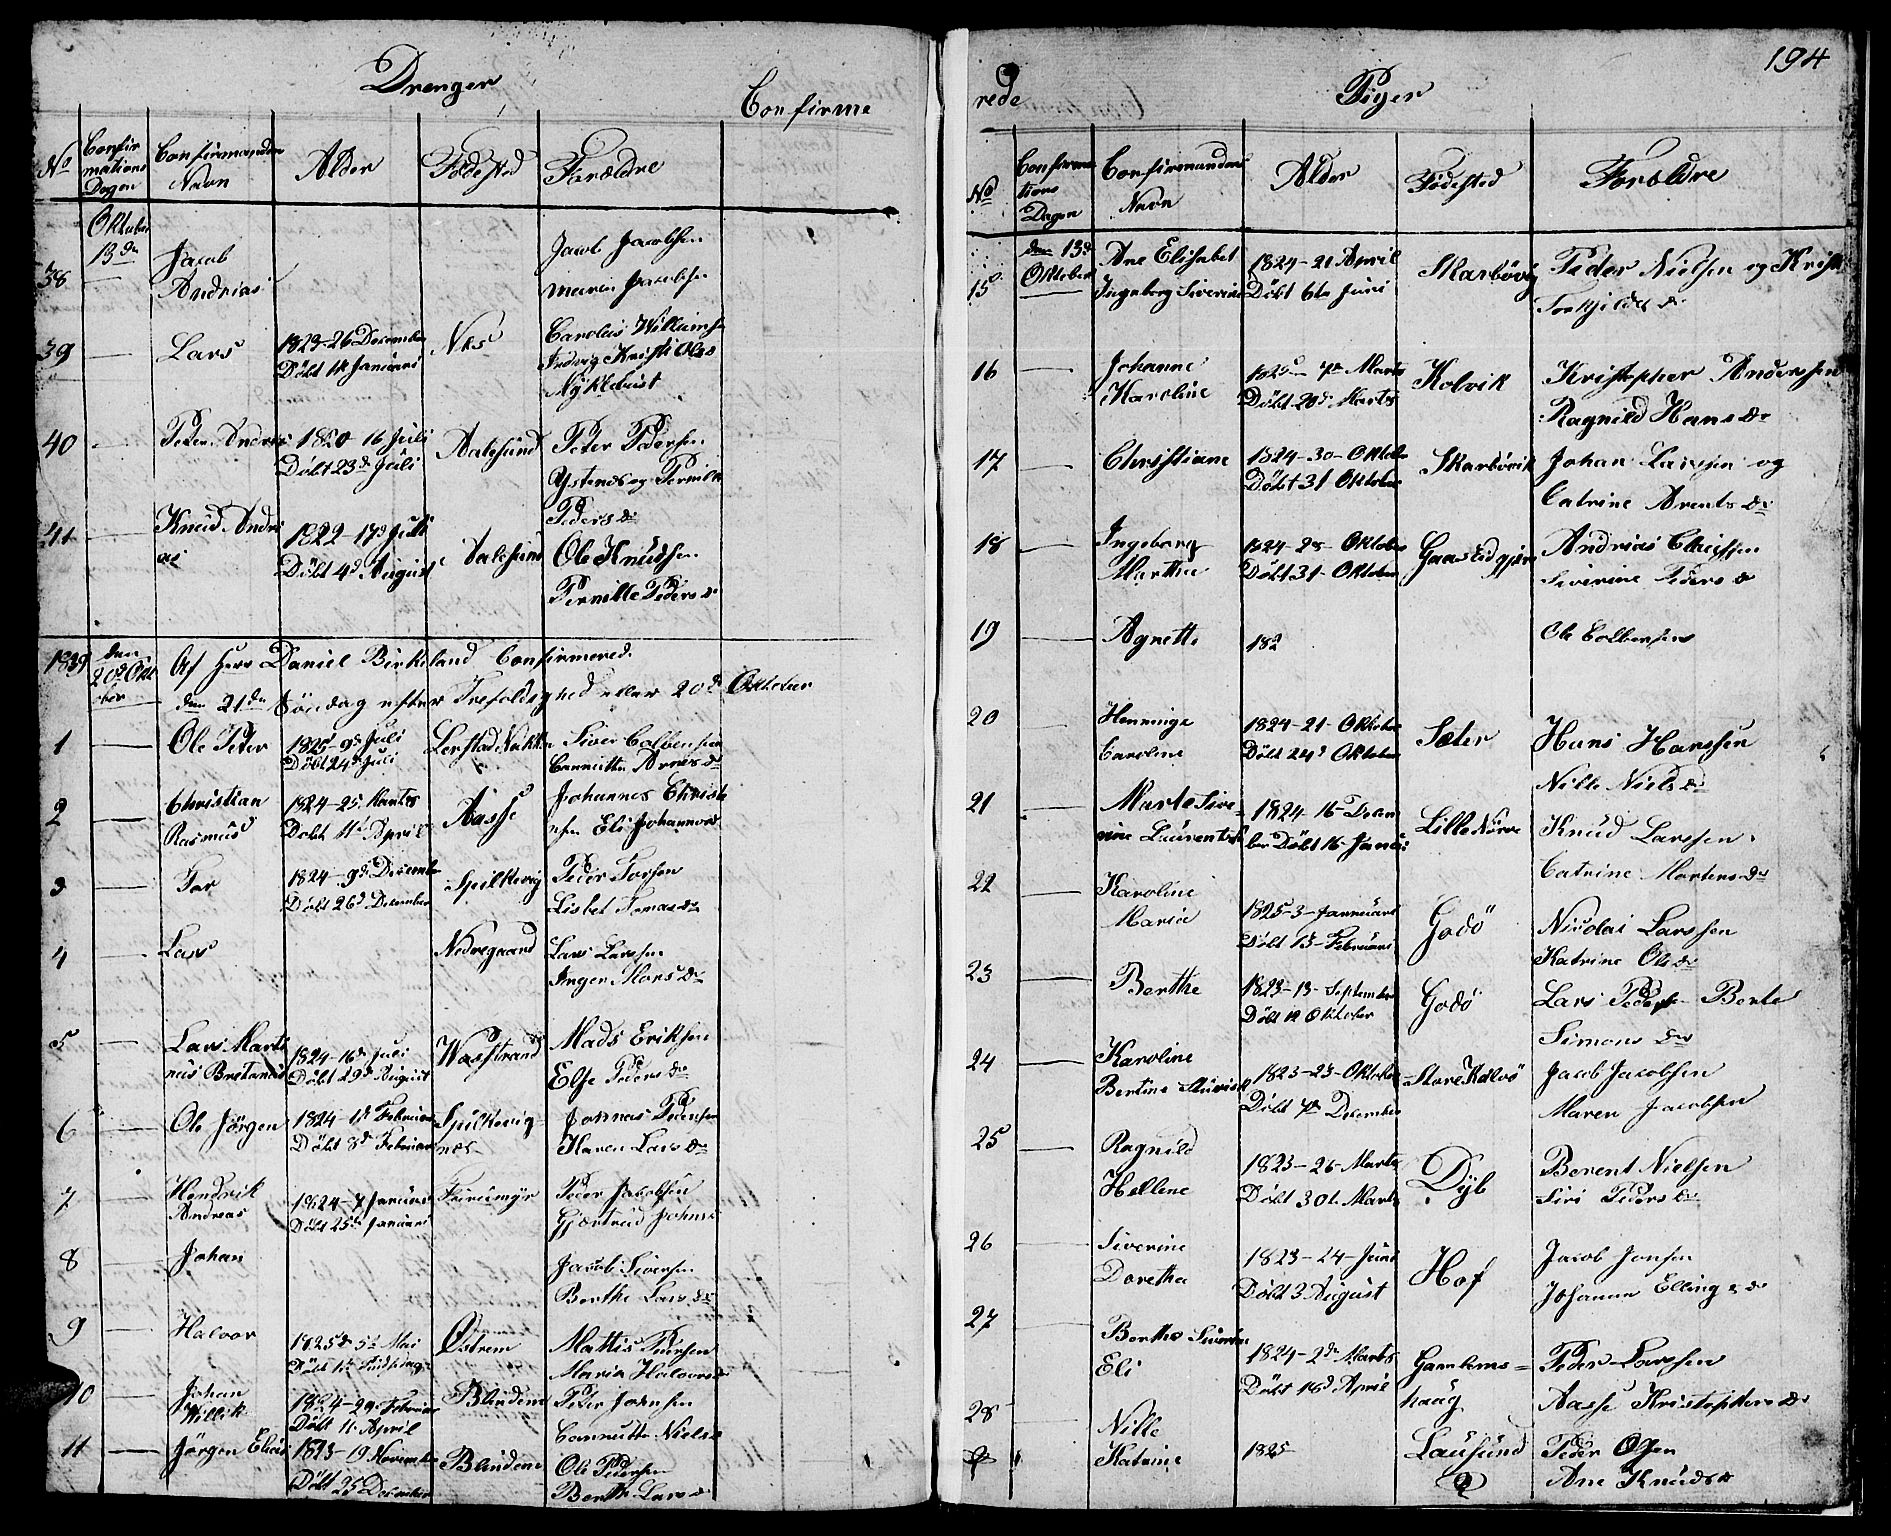 Drenger
Confirme
No
Confir
mations
Dagen
Confirmanden
Navn
Alder
Fødested
Forældre
Oktober
13de
38 Jacob
Andrias
Jacob Jacobsen
Maren Jacobsen
39 Lars 1823-26 December
Døbt 1te Januari
Næs
Carolus Willumsen
Kristi Olsd
Myklebust
40 Peter Andreas 1820-16 Juli
Døbt 23de Juli
Aalesund
Peter Pedersen
Ystenes og Pernille
Pedersdr
41 Knud Andri
as
1822-17de Juli
Døbt 4de August
Aalesund
Ole Knudsen
Pernille Pedersdr
1839 den
20de Okto
ber
Af Herr Daniel Birkeland Confirmered
den 21de Søndag efter Trefoldighed eller 20de Oktober
1 Ole Peter 1825-9de Juli
Døbt 24de Juli
Siver Colbensen
Arnesdr
2 Christian
Rasmus
1824-25 Marts
Døbt 11te April
Aasse
Johannes Christi
nsen Eli Johannesd
3 Tor 1824-9de December
Døbt 26de December
Spilkevig
Peder Torsen
Lisbet Tomasdr
4 Lars
Nedregaard
Lars Larssen
Inger Monsdr
5 Lars Marti
nus Bretanus
1824-16de Juli
Døbt 29de August
Wasstrand
Mads Eriksen
Else Pedersdr
6 Ole Jørgen 1824-1te Februar
Døbt 8de Februar
Spilkevig-
næs
Johnnas Pedersen
Karen Larsdr
7 Hendrik
Andreas
1824-7 Januar
Døbt 25de Januari
Furumyr
Peder Jacobsen
Gjertrud Johns
8 Johan
Jacob Siversen
Berthe Larsdr
9 Halvor 1825 5te Mai
Døbt
Østrem
Mattis Iversen
Maria Halvorsdr
10 Johan
Willik
1824-29 Februar
Døbt 11 April
Blindem
Peter Johnsen
Nielsd
11 Jørgen Elias 1823-19 November
Døbt 25 December
Blindem
Ole Pedersen
Berthe Larsd
rede
Piger
194
No
Confirma
tions
Dagen
Confirmanders
Navn
Alder
Fødested
Forældre
den 13de
Oktober
15 Ane Elisabet
Ingeborg Siverine
1824-21 April
Døbt 6te Juni
Skarbøvig
Peder Nielsen og Kristi
Torkildsdr
16 Johanne
Karoline
1825-7de Marts
Døbt 20de Marts
Kolvik
Kristopher Andersen
Ragnild Hansdr
17 Christiane 1824-30-Oktober
Døbt 31 Oktober
Skarbøvik
Johan Larssen og
Catrine Arentsdr
18 Ingeborg
Martha
1824-28-Oktober
Døbt 31-Oktober
Andrias Clausen
Siverine Pedersdr
19 Agnette 182
Ole Colbensen
20 Henninge
Caroline
1824-21-Oktober
Døbt 24de Oktober
Sæter
Hans Hanssen
Nille Nielsdr
21 Marte Sive=
rine Laurentse
1824 16-Decem
ber Døbt 16-Januari
Lille Nørve
Knud Larssen
Catrine Mortensdr
22 Karoline
Maria
1825-3-Januari
Døbt 13-Februari
Godø
Nicolai Larssen
Katrine Olsdr
23 Berthe 1823-13-September
Døbt 12 Oktober
Godø
Lars Pedersen Berte
Simonsdr
24 Karoline
Bertine
1823-23-Oktober
Døbt 7de December
Store Kalvø
Jacob Jacobsen
Maren Jacobsen
25 Ragnild
Hellene
1823-26-Marts
Døbt 30te Marts
Dyb
Berent Nielsen
Siri Pedersdr
26 Siverine
Dorethea
1823-24-Juni
Døbt 3 August
Hof
Jacob Jonsen
Johanne Ellingsdr
27 Berthe Siverine
Eli
1824-2de Marts
Døbt 18de April
Gamlems=
haug
Peder Larssen
Aasse Kristophersdr
28 Nille
Katrine
1825
Lausund
Peder Olsen
Ane Knudsdr